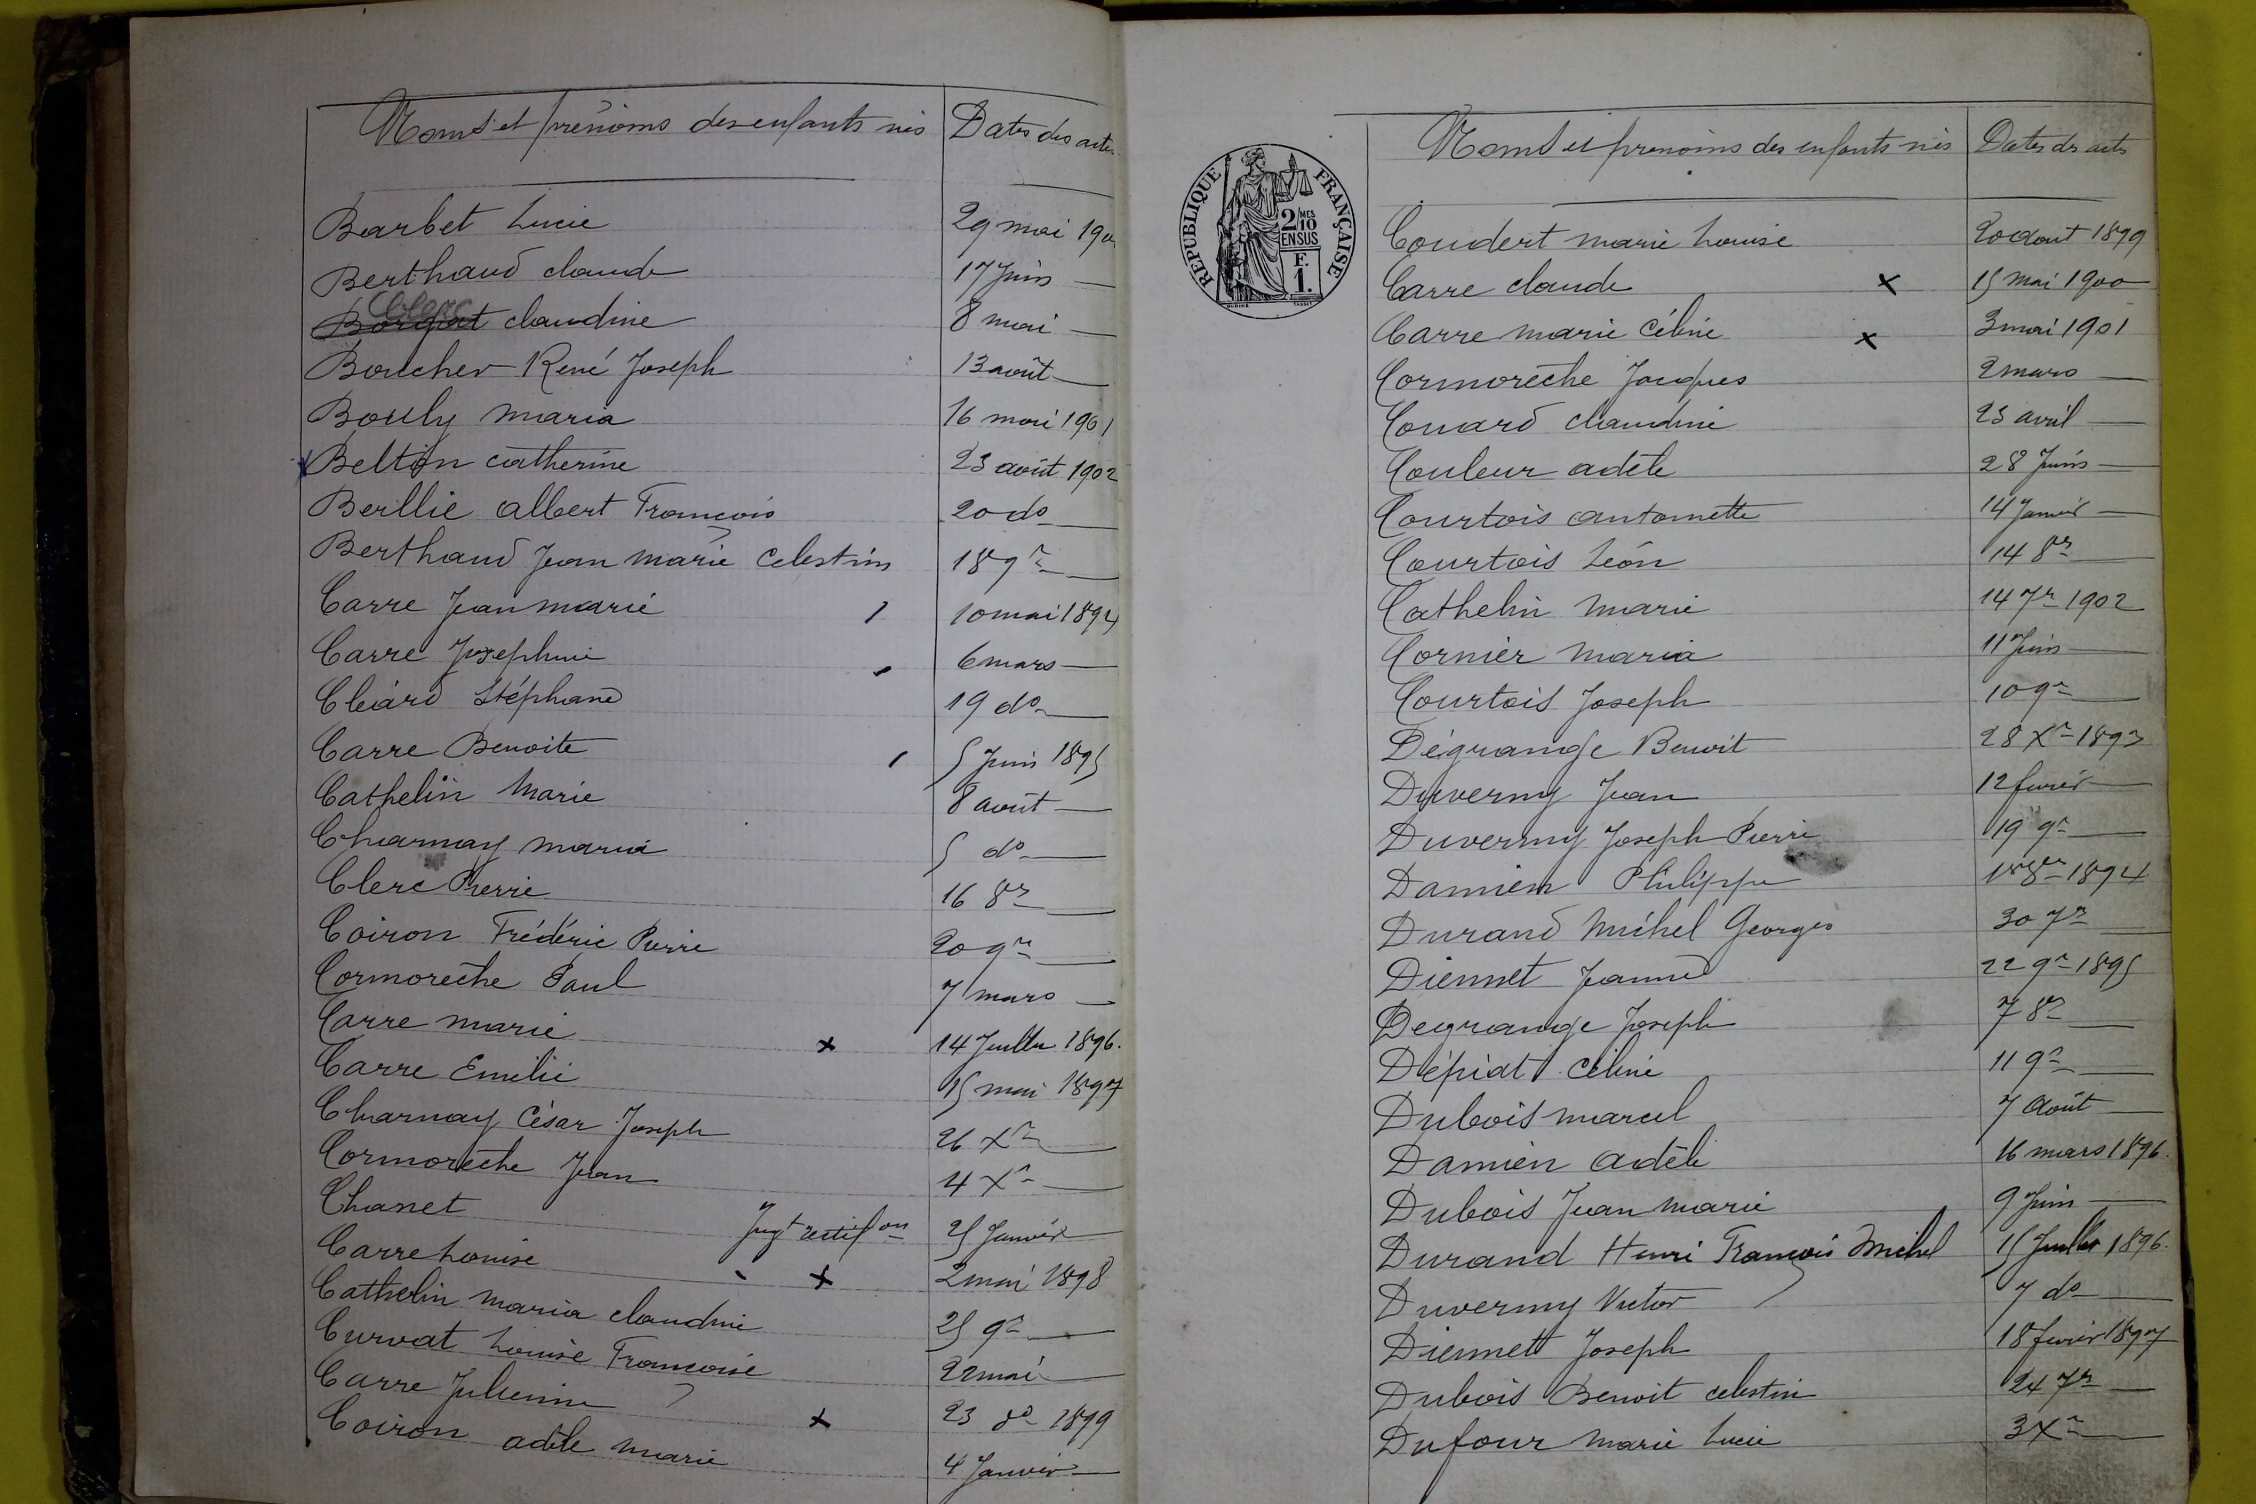 Noms et prénoms des enfants nés Dates des actes
Barbet Lucie 29 mai
Berthaud claude 17 Juin —
Clerc
Borgat claudine 8 mai —
Boucher René Joseph 13 août —
Bouly Maria 16 mai 1901
Beltin catherine 23 août 1902
Berllie albert François 20 do —
Berthaud Jean marie celestin 18 9r —
Carre Jean marie 10 mai 1894
Carre Josephine 6 mars —
Cléard Stéphane 19 do —
Carre Benoite 5 Juin 1895
Cathelin Marie 8 août —
Charnay maria 5 do —
Clerc Pierre 16 8r —
Coiron Frédéric Pierre 20 9r —
Cormorèche Paul 7 mars —
Carre marie x 14 Juillet 1896.
Carre Emilie 15 mai 1897
Charnay César Joseph 26 Xr —
Cormorèche Jean 4 Xr —
Chanet Jugt rectifon 25 Janvier —
Carre Louise x 2 mai 1898
Cathelin maria claudine 25 9r —
Curvat Louise Françoise 22 mai —
Carre Julienne x 23 8r 1899
Coiron adèle marie 4 Janvier —
REPUBLIQUE FRANÇAISE
2/10 MES
EN SUS
F.
1.
Noms et prenoms des enfants nés Dates des acts
Coudert marie Louise 20 aout 1899
Carre claude x 15 mai 1900
Carre marie Céline x 3 mai 1901
Cormorèche Jacques 2 mars —
Couard claudine 25 avril —
Couleur adèle 28 Juin —
Courtois antoinette 14 Janvier —
Courtois Léon 14 8r —
Cathelin Marie 14 7r 1902
Cornier Maria 11 Juin —
Courtois Joseph 10 9r —
Dégrange Benoit 28 Xr 1893
Duverny Jean 12 fevrier —
Duverny Joseph Pierre 19 9r —
Damien Philippe 1894
Durand Michel Georges 30 7r —
Diennet Jeanne 22 9r 1895
Degrange Joseph 7 8r —
Dépiat Céline 11 9r —
Dubois marcel 7 Août —
Damien adèle 16 mars 1896.
Dubois Jean marie 9 Juin —
Durand Henri François Michel 15 Juillet 1896.
Duverny Victor 7 do —
Diennet Joseph 18 fevrier 1897
Dubois Benoit celestin 24 7r —
Dufour marie Lucie 3 Xr —